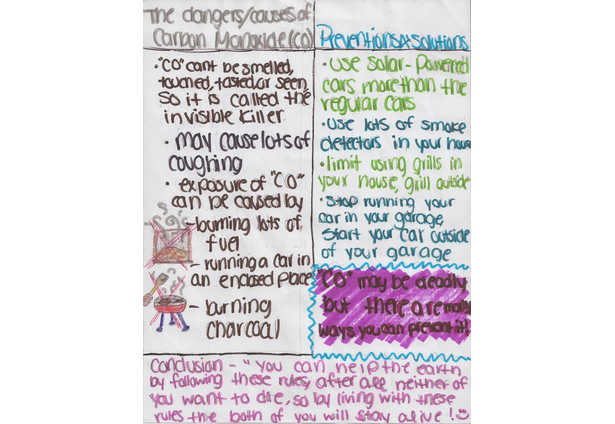 The dangers/causes of
Carbon Monoxide (CO)
• "CO" cant be smelled,
touched, tasted, or seen,
so it is called the
invisible killer
• may cause lots of
coughing
• exposure of "CO"
can be caused by
- burning lots of
fuel
- running a car in
an enclosed place
- burning
charcoal
Preventions & Solutions
• use solar-powered
cars more than the
regular cars
• use lots of smoke
detectors in your house
• limit using grills in
your house, grill outside
• Stop running your
car in your garage,
start your car outside
of your garage
"CO" may be deadly
but there are many
ways you can prevent it!
Conclusion - "You can help the earth
by following these rules, after all neither of
you want to die, so by living with these
rules the both of you will stay alive!